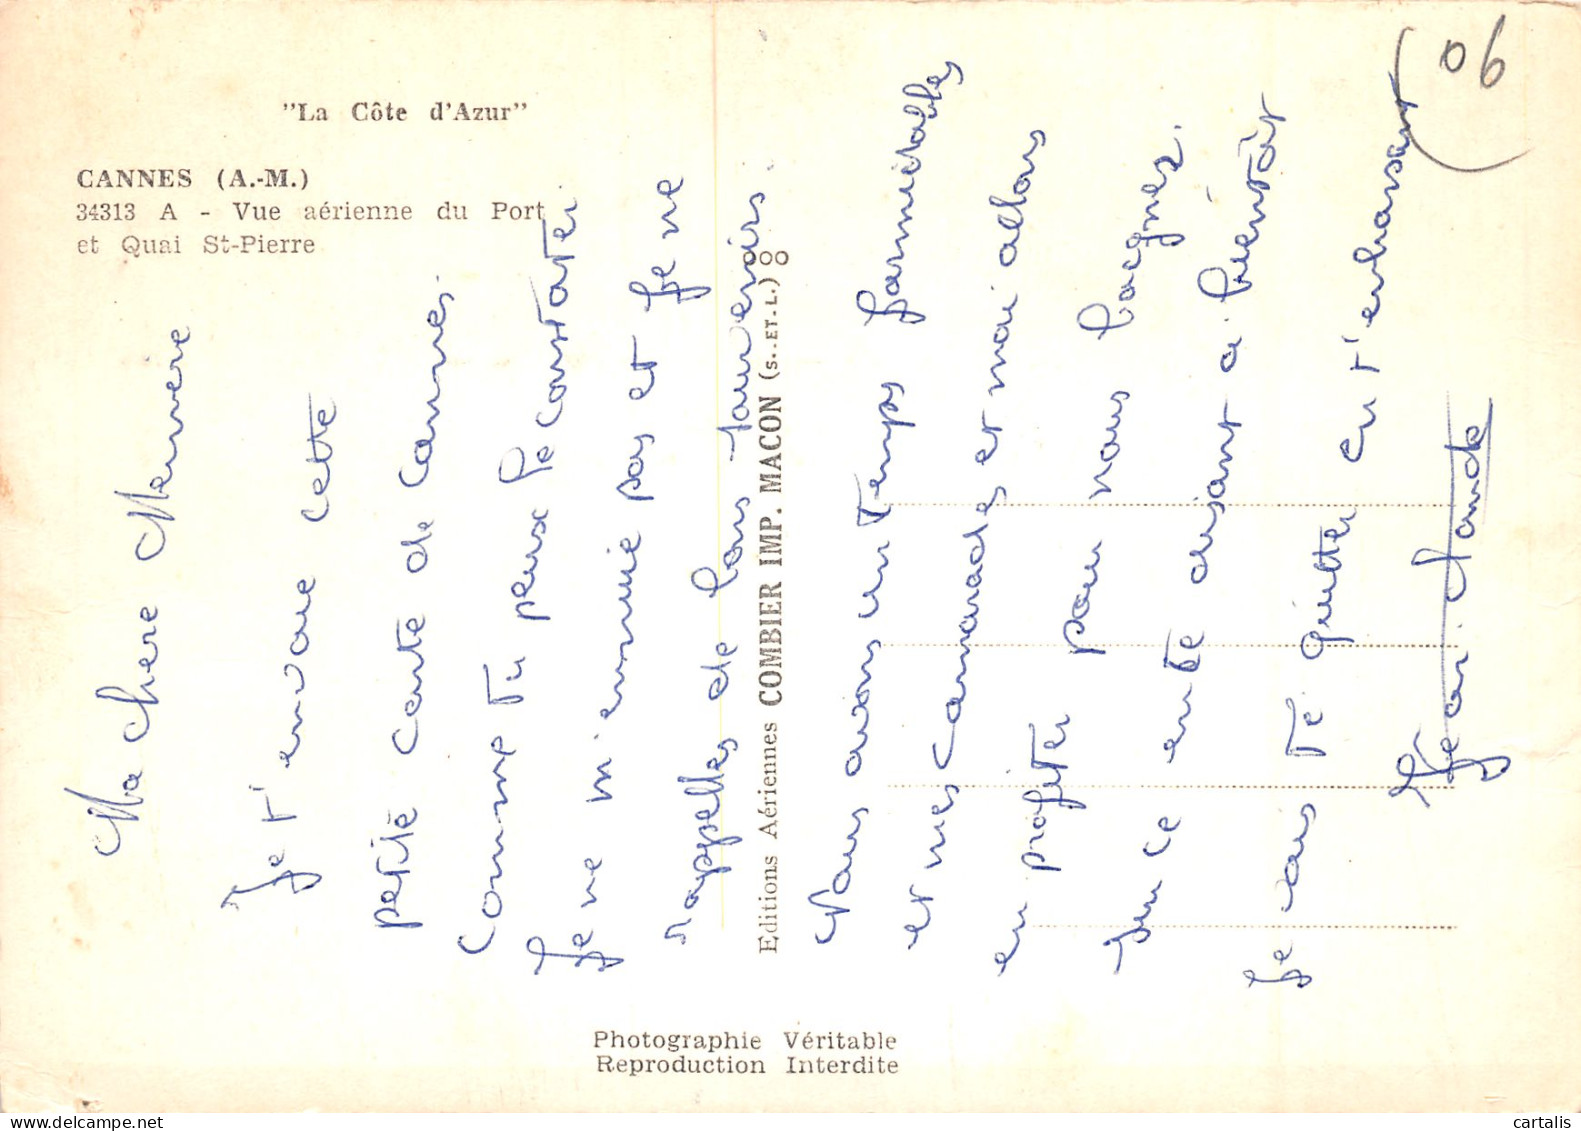 "La Côte d'Azur"
CANNES (A.-M.)
34313 A - Vue aérienne du Port
et Quai St-Pierre
Ma chere Memere
Je t'envoie cette
petite carte de Cannes.
Comme tu peux le constater
Je ne m'ennuie pas et Je ne
rappelles de bons souvenirs.
Nous avons un temps formidables
et mes camarades et moi allons
en profiter pour nous baigner.
Sur ce en te disant a bientôt
Je vais te quitter en t'enbrassant
Jean. Claude
06
Editions Aériennes COMBIER IMP. MACON (S.-ET-L.)
Photographie Véritable
Reproduction Interdite
cartalis